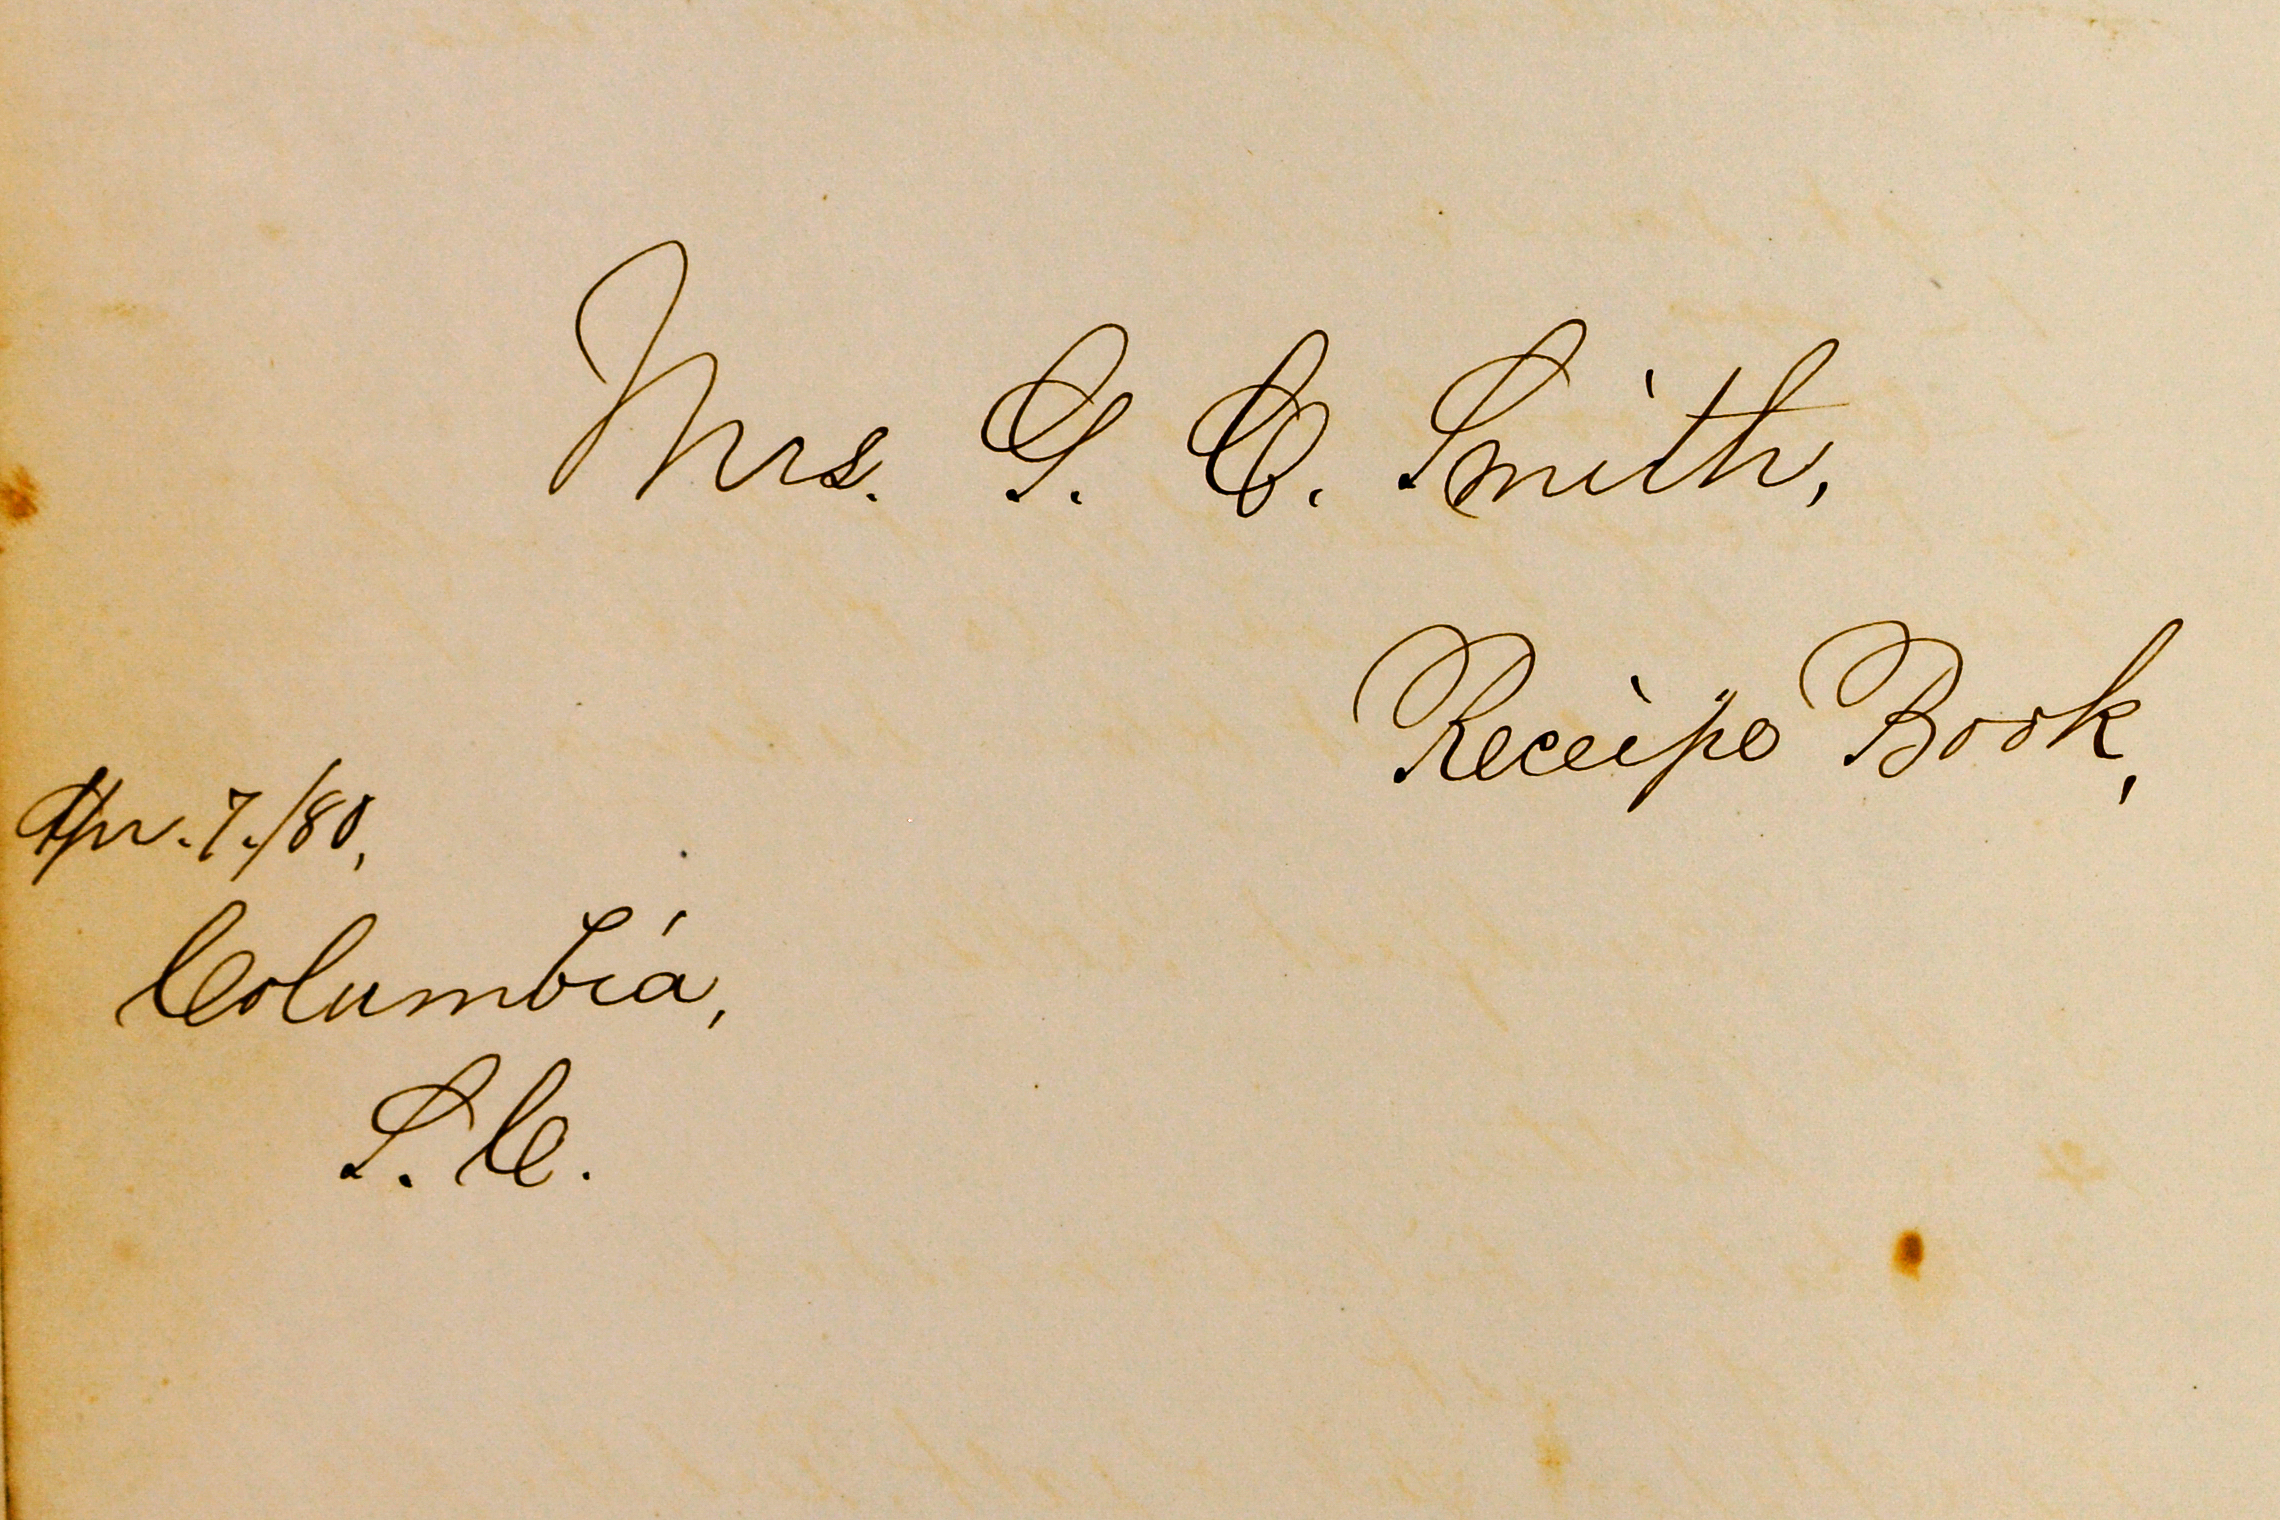 Mrs. G. C. Smith,
Receipe Book,
Apr. 7./80,
Columbia,
S. C.